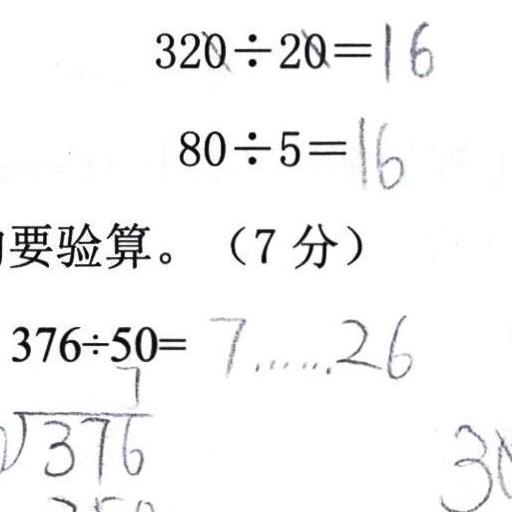 320÷20=16
80÷5=16
要验算。（7 分）
376÷50= 7……26
7
376
350